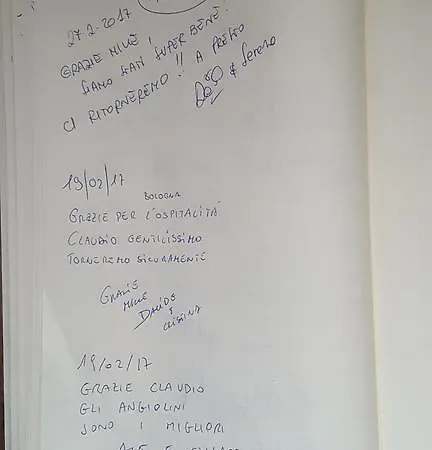 27-2-2017
GRAZIE MILLE!
SIAMO STATI SUPER BENE!
CI RITORNEREMO!! A PRESTO
& Serena
19/02/17
BOLOGNA
GRAZIE PER L'OSPITALITÀ
CLAUDIO GENTILISSIMO
TORNEREMO SICURAMENTE
GRAZIE
MILLE
DAVIDE
E
CRISTINA
19/02/17
GRAZIE CLAUDIO
GLI ANGIOLINI
SONO I MIGLIORI